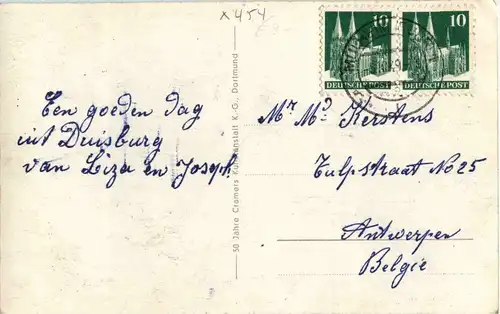 x 454
10 10
DEUTSCHE POST DEUTSCHE POST
Een goeden dag
uit Duisburg
van Liza en Joseph
50 Jahre Cramers Kunstanstalt K.-G., Dortmund
Mr Md Kerstens
Tulpstraat No 25
Antwerpen
Belgie